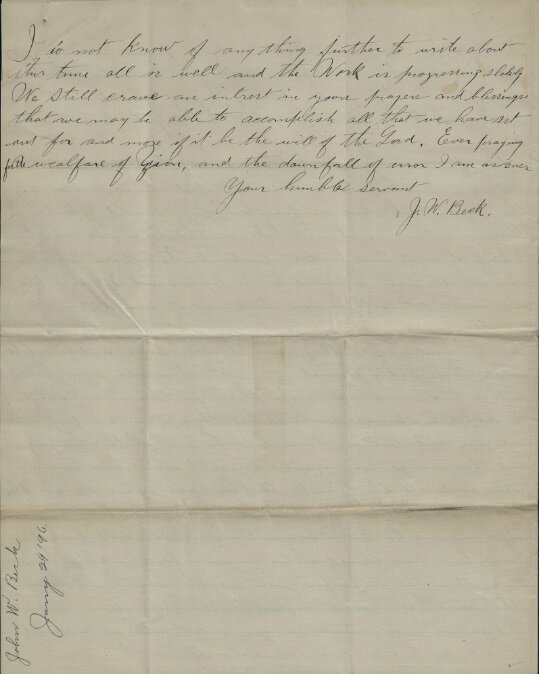 I do not know of any thing further to write about
this time all is well and the Work is progressing slolely
We still crave an intrest in your prayers and blessings
that we may be able to accomplish all that we have set
out for and more if it be the will of the Lord. Ever praying
for the wealfare of Zion, and the downfall of error I am as ever
Your humble servant
J. W. Beck.
John W. Beck
Jany 29 '96